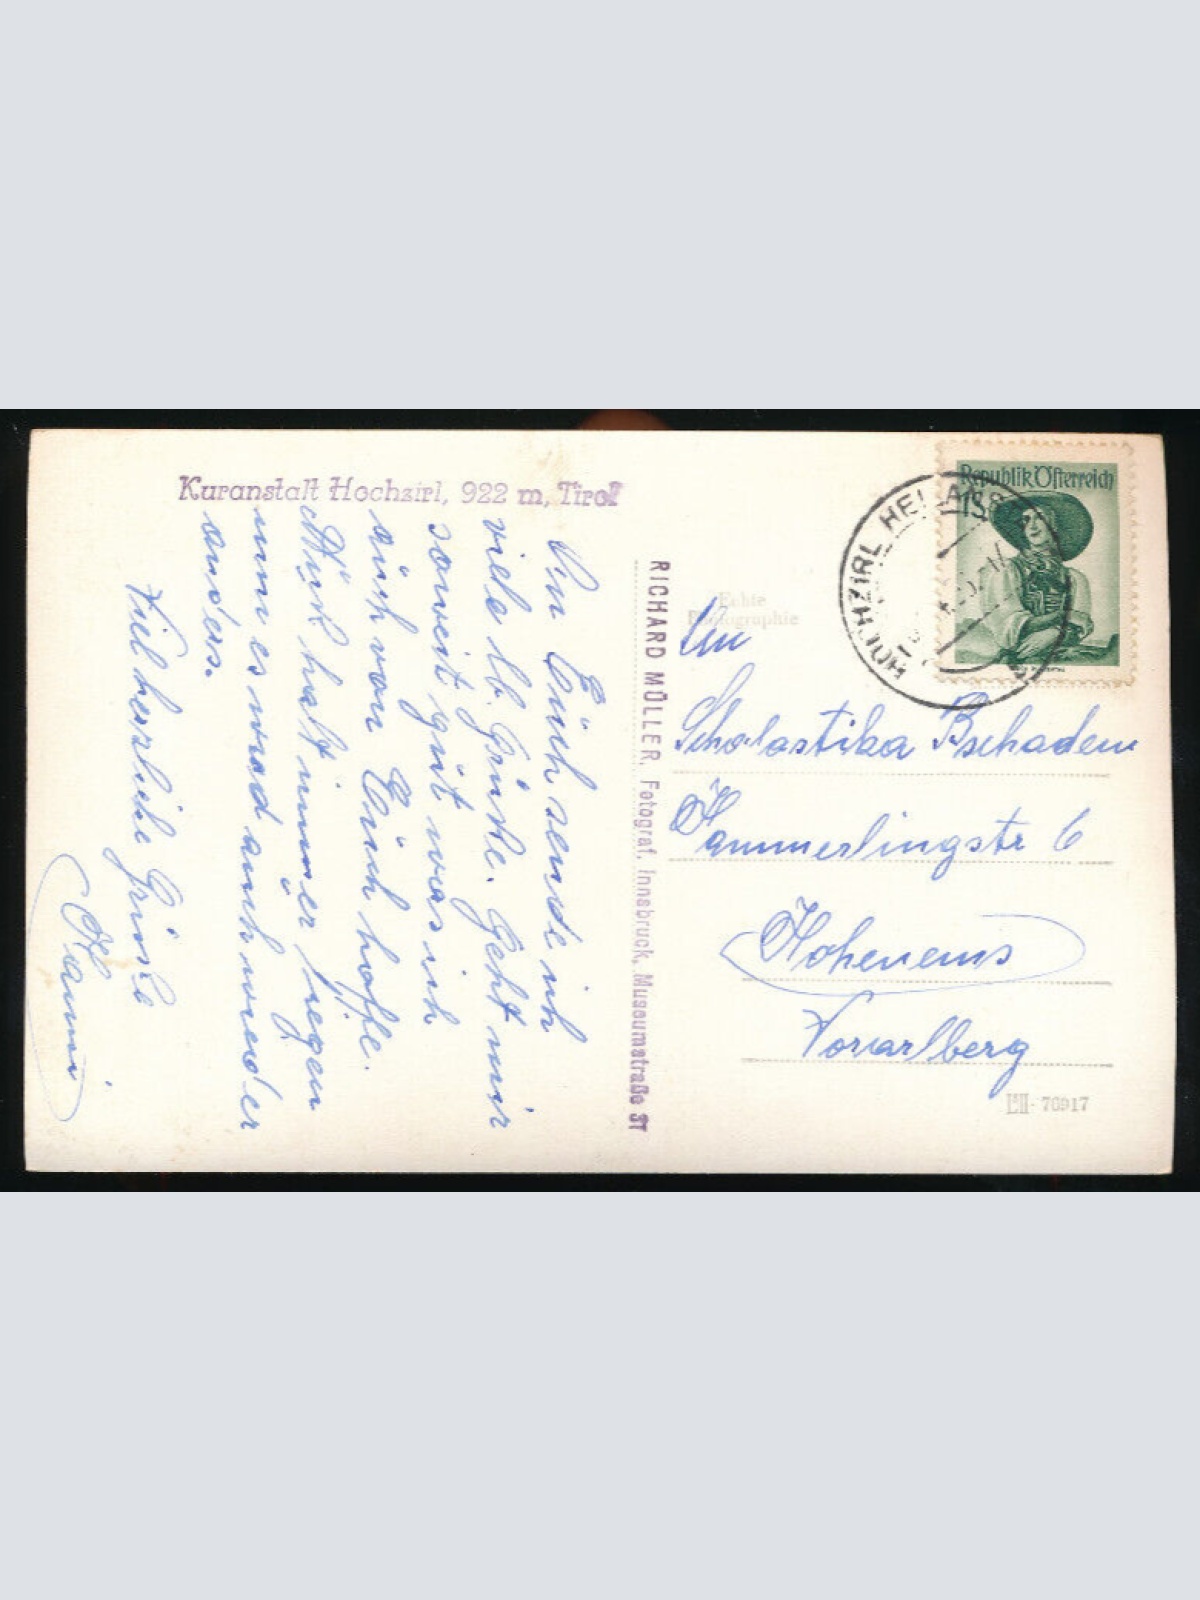 Kuranstalt Hochzirl, 922 m, Tirol
An Euch sende ich
viele lb. Grüße. Geht mir
soweit gut was ich
auch von Euch hoffe.
hat immer
nun es wird auch wieder
anders.
Viel herzliche Grüße
Hanni
RICHARD MÜLLER, Fotograf, Innsbruck, Museumstraße 37
Echte
Photographie
HOCHZIRL
Republik Österreich
1S
An
Scholastika Bschaden
Hämmerlingstr 6
Hohenems
Vorarlberg
70917